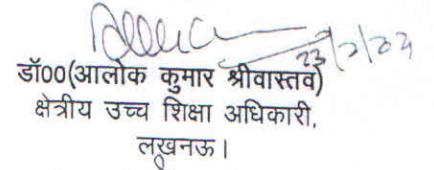 डॉ00(आलोक कुमार श्रीवास्तव)
क्षेत्रीय उच्च शिक्षा अधिकारी,
लखनऊ।